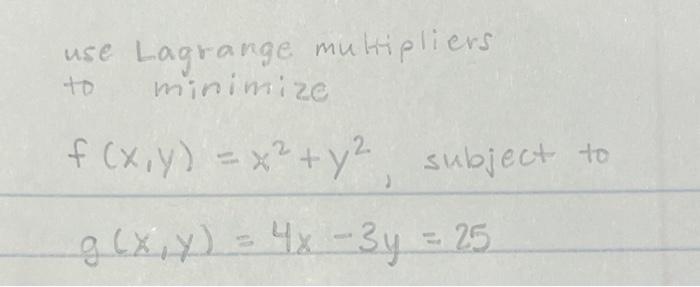 use Lagrange multipliers
to minimize
f(x,y) = x² + y², subject to
g(x,y) = 4x - 3y = 25